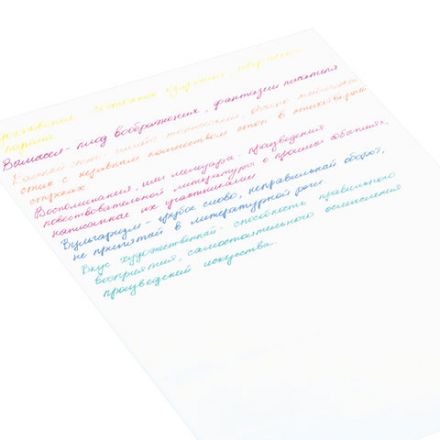 Вымысел - плод воображения, фантазии писателя
стих с неравным количеством стоп в стихотворных
строках.
Воспоминания, или мемуары, произведения
повествовательной литературы о прошлых событиях,
написанные их участниками
Вульгаризм - грубое слово, неправильный оборот,
не принятый в литературной речи.
Вкус художественный - способность правильного
восприятия, самостоятельного осмысления
произведений искусства.